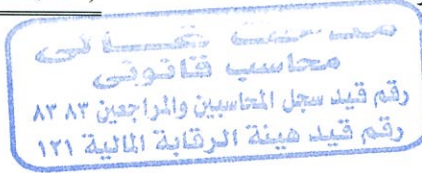 محاسب قانونى
رقم قيد سجل المحاسبين والمراجعين ٨٣ ٨٣
رقم قيد هيئة الرقابة المالية ١٢١